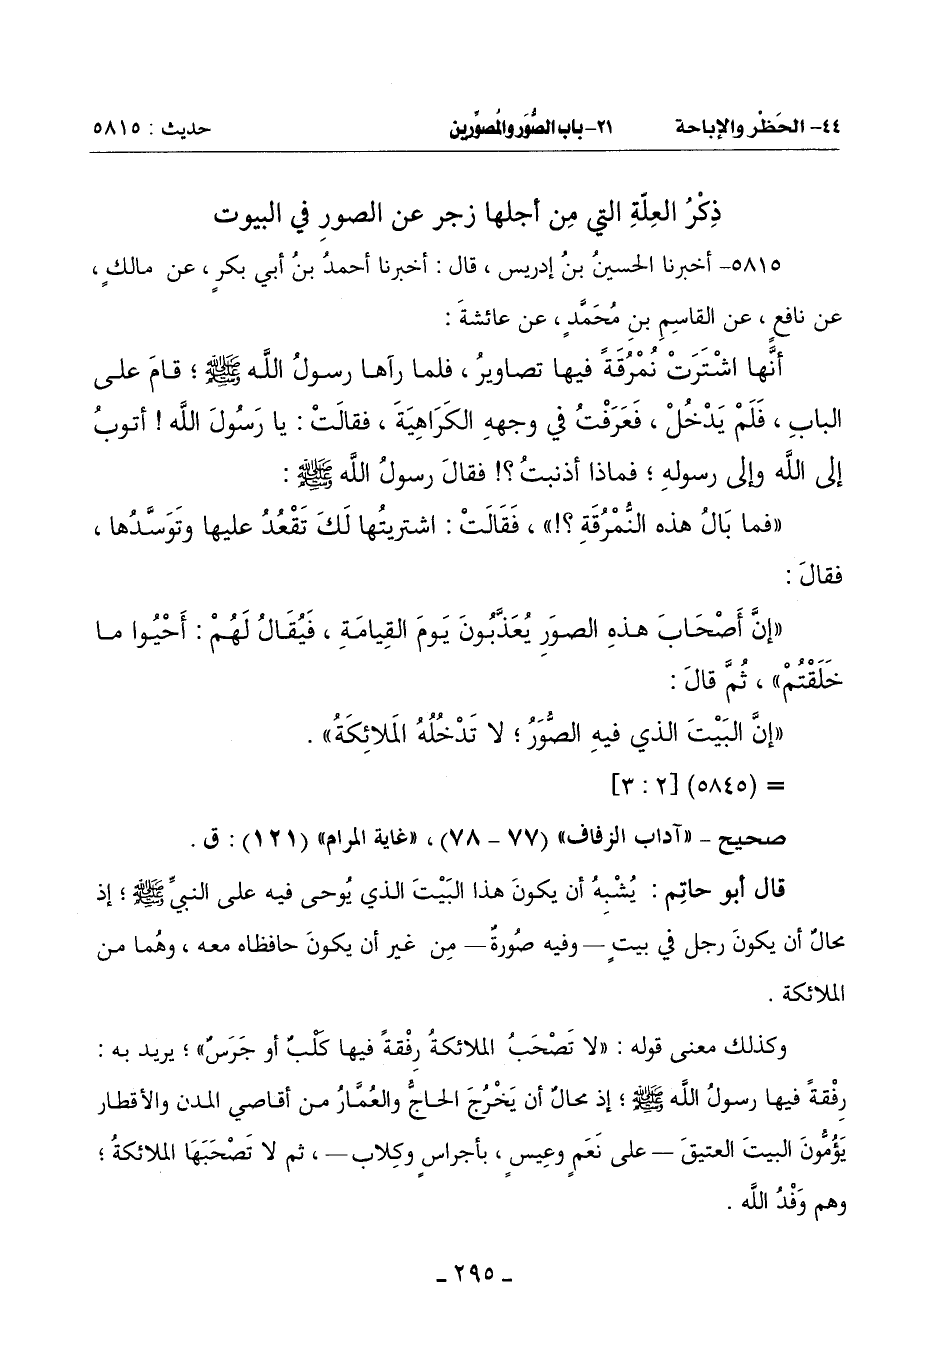 ٤٤- الحَظْر والإباحة ٢١- باب الصُّوَر والمُصوِّرين حديث : ٥٨١٥
ذِكْرُ العِلّةِ التي مِن أجلها زجر عن الصورِ في البيوت
٥٨١٥- أخبرنا الحسينُ بنُ إدريس ، قال : أخبرنا أحمدُ بنُ أبي بكرٍ ، عن مالكٍ ،
عن نافعٍ ، عن القاسمِ بنِ مُحَمَّدٍ ، عن عائشةَ :
أنَّها اشْتَرَتْ نُمْرُقَةً فيها تصاويرُ ، فلما رآها رسولُ اللَّه ﷺ ؛ قامَ على
البابِ ، فَلَمْ يَدْخُلْ ، فَعَرَفْتُ في وجههِ الكَرَاهِيَةَ ، فقالَتْ : يا رَسُولَ اللَّه ! أتوبُ
إلى اللَّه وإلى رسولهِ ؛ فماذا أذنبتُ ؟! فقالَ رسولُ اللَّه ﷺ :
«فما بَالُ هذه النُّمْرُقَةِ ؟!» ، فَقَالَتْ : اشتريتُها لَكَ تَقْعُدُ عليها وتَوَسَّدُها ،
فقالَ :
«إنَّ أَصْحَابَ هذهِ الصوَرِ يُعَذَّبُونَ يَومَ القِيامَةِ ، فَيُقَالُ لَهُمْ : أَحْيُوا ما
خَلَقْتُمْ» ، ثُمَّ قالَ :
«إنَّ البَيْتَ الذي فيهِ الصُّوَرُ ؛ لا تَدْخُلُهُ المَلائِكَةُ» .
= (٥٨٤٥) [٢ : ٣]
صحيح - «آداب الزفاف» (٧٧ - ٧٨) ، «غاية المرام» (١٢١) : ق .
قال أبو حاتِم : يُشْبِهُ أن يكونَ هذا البَيْتَ الذي يُوحى فيه على النبيِّ ﷺ ؛ إذ
محالٌ أن يكونَ رجل في بيتٍ - وفيه صُورةٌ - مِن غير أن يكونَ حافظاه معه ، وهُما من
الملائكة .
وكذلك معنى قوله : «لا تَصْحَبُ الملائكةُ رِفْقةً فيها كَلْبٌ أو جَرَسٌ» ؛ يريد به :
رِفْقةً فيها رسولُ اللَّه ﷺ ؛ إذ محالٌ أن يَخْرُجَ الحاجُّ والعُمَّارُ من أقاصي المدن والأقطار
يَؤُمُّونَ البيتَ العتيقَ - على نَعَمٍ وعِيسٍ ، بأجراسٍ وكلابٍ - ، ثم لا تَصْحَبَهَا الملائكةُ ؛
وهم وَفْدُ اللَّه .
- ٢٩٥ -